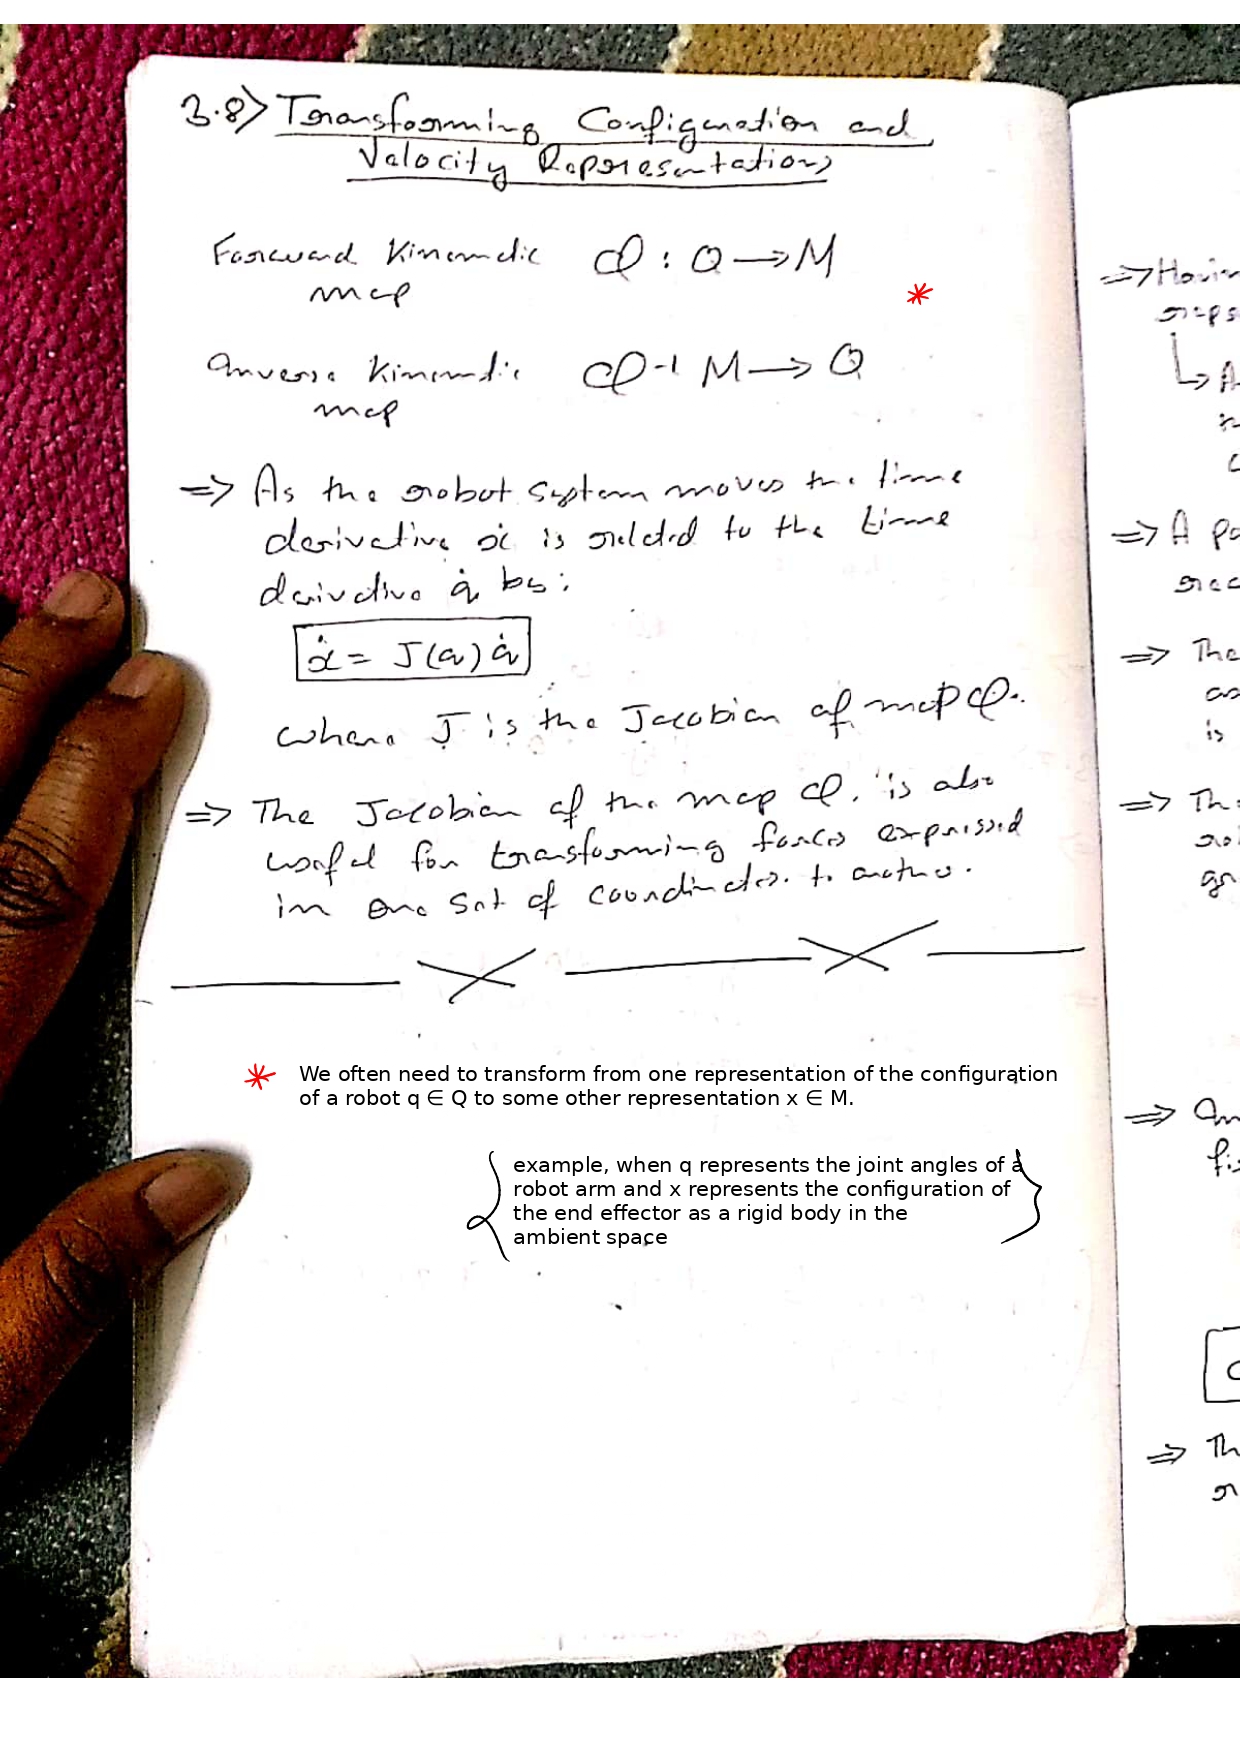 3.8) Transforming Configuration and
Velocity Representations
Forward Kinematic φ : Q → M
map
*
Inverse Kinematic φ⁻¹ M → Q
map
⇒ As the robot system moves the time
derivative ẋ is related to the time
derivative q̇ by:
ẋ = J(q) q̇
where J is the Jacobian of map φ.
⇒ The Jacobian of the map φ. is also
useful for transforming forces expressed
in one set of coordinates. to another.
* We often need to transform from one representation of the configuration
of a robot q ∈ Q to some other representation x ∈ M.
{ example, when q represents the joint angles of a }
robot arm and x represents the configuration of
the end effector as a rigid body in the
ambient space
⇒
⇒ A
⇒ The
is
⇒
⇒
⇒